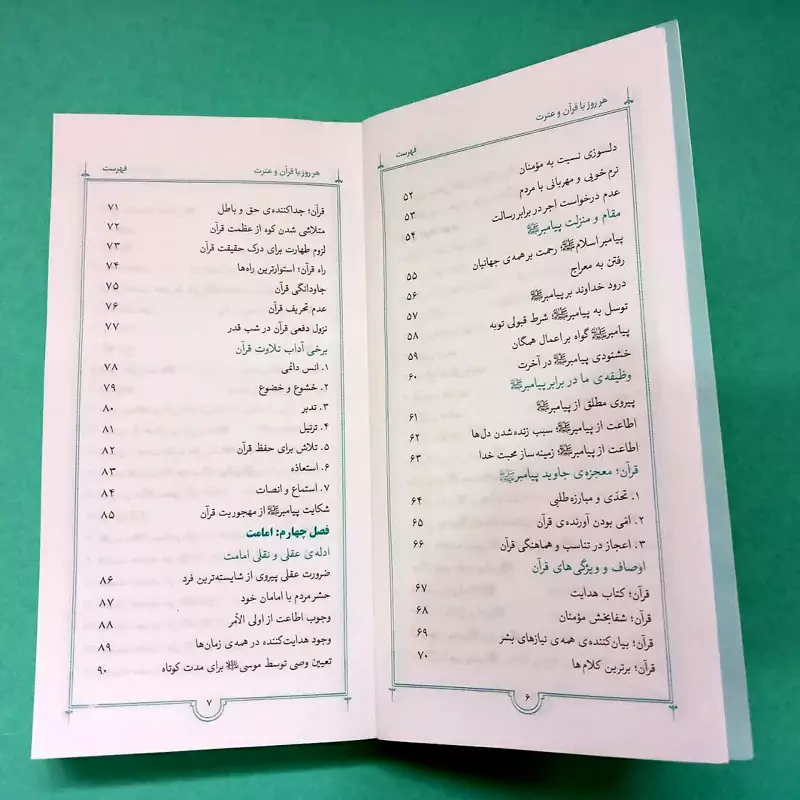 هر روز با قرآن و عترت
فهرست
دلسوزی نسبت به مؤمنان ۵۲
نرم‌خویی و مهربانی با مردم ۵۳
عدم درخواست اجر در برابر رسالت ۵۴
مقام و منزلت پیامبرﷺ
پیامبر اسلامﷺ؛ رحمت بر همه‌ی جهانیان ۵۵
رفتن به معراج ۵۶
درود خداوند بر پیامبرﷺ ۵۷
توسل به پیامبرﷺ؛ شرط قبولی توبه ۵۸
پیامبرﷺ گواه بر اعمال همگان ۵۹
خشنودی پیامبرﷺ در آخرت ۶۰
وظیفه‌ی ما در برابر پیامبرﷺ
پیروی مطلق از پیامبرﷺ ۶۱
اطاعت از پیامبرﷺ؛ سبب زنده شدن دل‌ها ۶۲
اطاعت از پیامبرﷺ؛ زمینه‌ساز محبت خدا ۶۳
قرآن؛ معجزه‌ی جاوید پیامبرﷺ
۱. تحدّی و مبارزه‌طلبی ۶۴
۲. امّی بودن آورنده‌ی قرآن ۶۵
۳. اعجاز در تناسب و هماهنگی قرآن ۶۶
اوصاف و ویژگی‌های قرآن
قرآن؛ کتاب هدایت ۶۷
قرآن؛ شفابخش مؤمنان ۶۸
قرآن؛ بیان‌کننده‌ی همه‌ی نیازهای بشر ۶۹
قرآن؛ برترین کلام‌ها ۷۰
۶
هر روز با قرآن و عترت
فهرست
قرآن؛ جداکننده‌ی حق و باطل ۷۱
متلاشی شدن کوه از عظمت قرآن ۷۲
لزوم طهارت برای درک حقیقت قرآن ۷۳
راه قرآن؛ استوارترین راه‌ها ۷۴
جاودانگی قرآن ۷۵
عدم تحریف قرآن ۷۶
نزول دفعی قرآن در شب قدر ۷۷
برخی آداب تلاوت قرآن
۱. انس دائمی ۷۸
۲. خشوع و خضوع ۷۹
۳. تدبر ۸۰
۴. ترتیل ۸۱
۵. تلاش برای حفظ قرآن ۸۲
۶. استعاذه ۸۳
۷. استماع و انصات ۸۴
شکایت پیامبرﷺ از مهجوریت قرآن ۸۵
فصل چهارم: امامت
ادله‌ی عقلی و نقلی امامت
ضرورت عقلی پیروی از شایسته‌ترین فرد ۸۶
حشر مردم با امامان خود ۸۷
وجوب اطاعت از اولی الأمر ۸۸
وجود هدایت‌کننده در همه‌ی زمان‌ها ۸۹
تعیین وصی توسط موسی برای مدت کوتاه ۹۰
۷